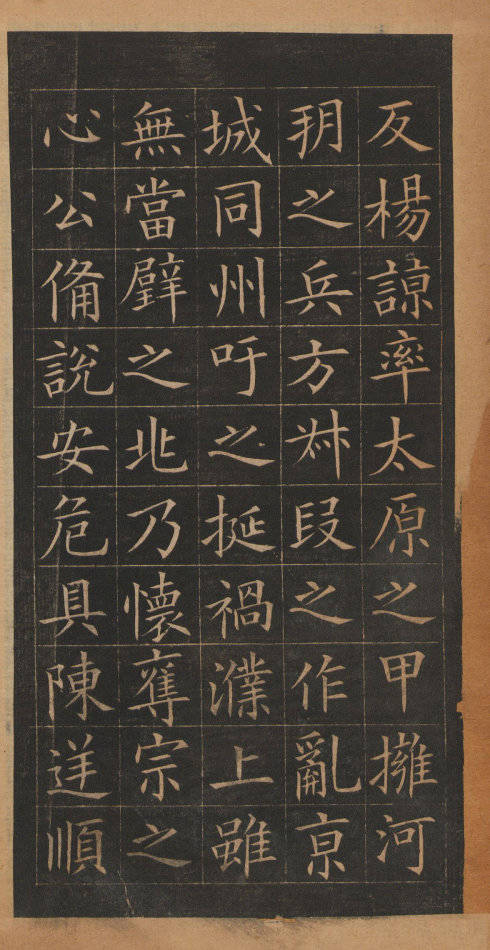 反楊諒率太原之甲擁河
朔之兵方叔段之作亂亰
城同州吁之挺禍濮上雖
無當璧之兆乃懷奪宗之
心公備說安危具陳逆順